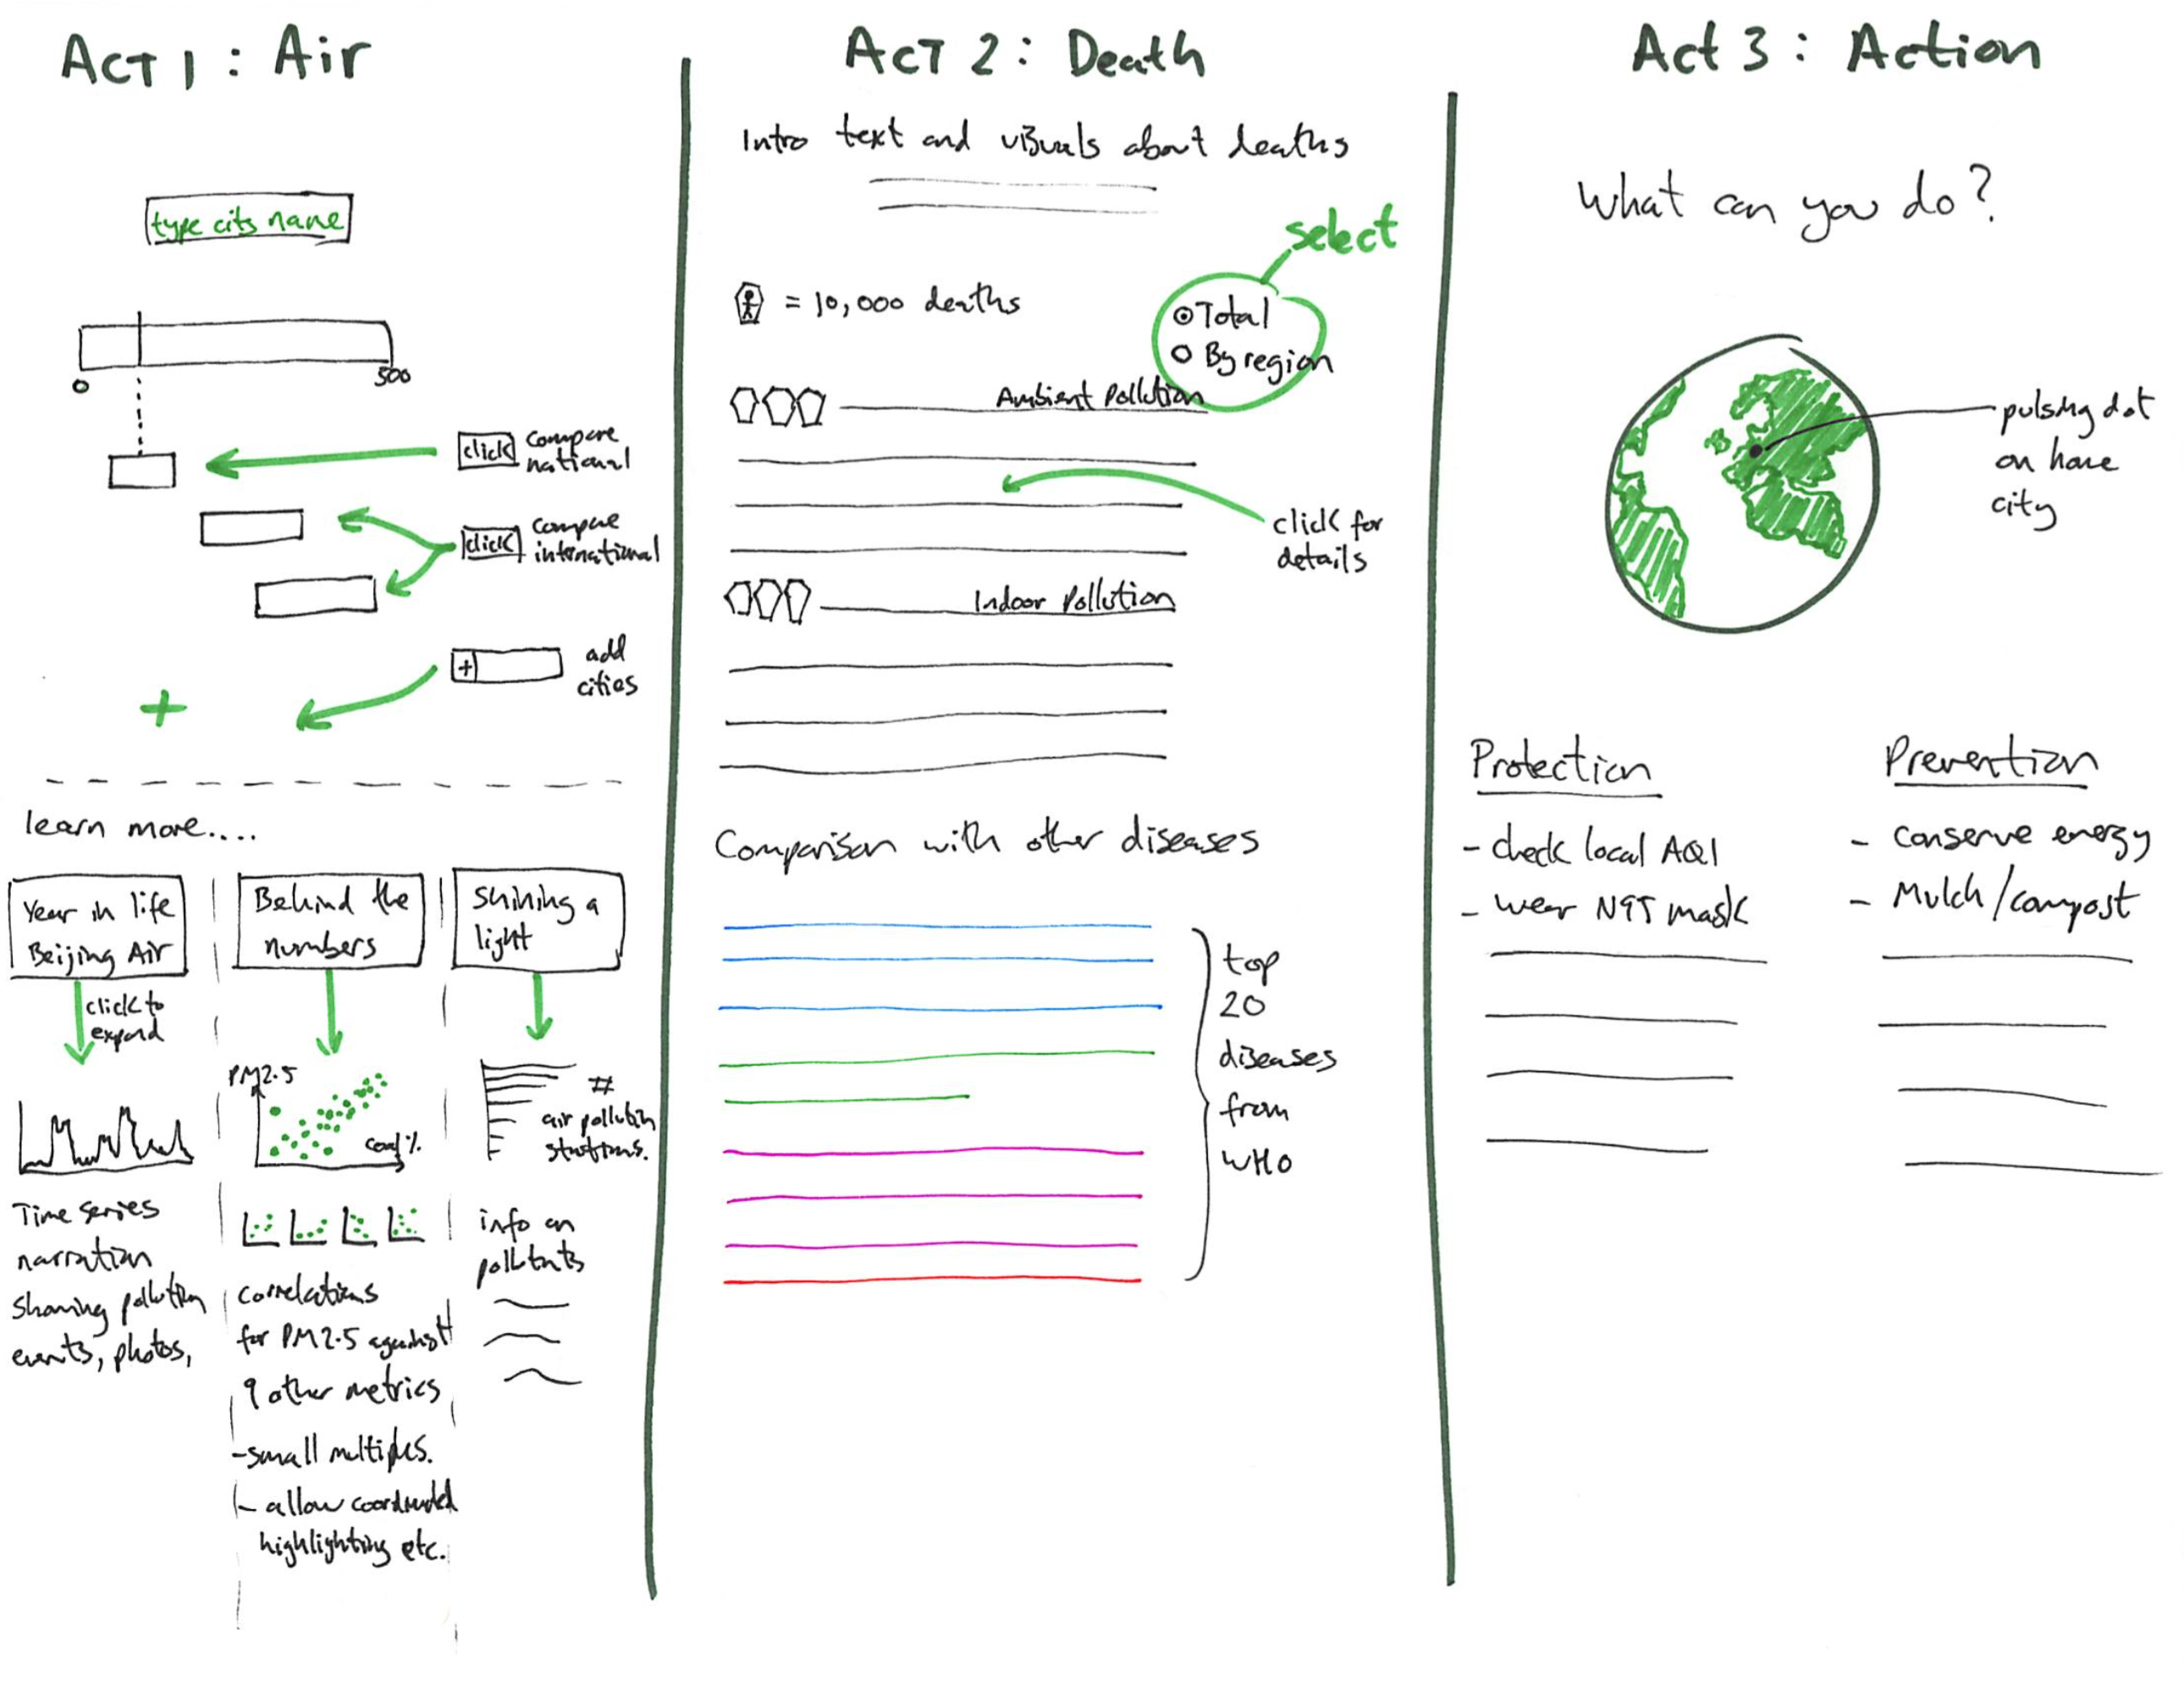 Act 1 : Air
type city name
0
500
click
compare
national
click
compare
international
+
add
cities
+
learn more....
Year in life
Beijing Air
click to
expand
Time series
narration
showing pollution
events, photos,
Behind the
numbers
PM2.5
coal %
correlations
for PM2.5 against
9 other metrics
- small multiples.
- allow coordinated
highlighting etc.
Shining a
light
#
air pollution
stations.
info on
pollutants
Act 2 : Death
Intro text and visuals about deaths
select
= 10,000 deaths
Total
By region
Ambient Pollution
click for
details
Indoor Pollution
Comparison with other diseases
top
20
diseases
from
WHO
Act 3 : Action
What can you do?
pulsing dot
on home
city
Protection
- check local AQI
- wear N95 mask
Prevention
- conserve energy
- Mulch/compost